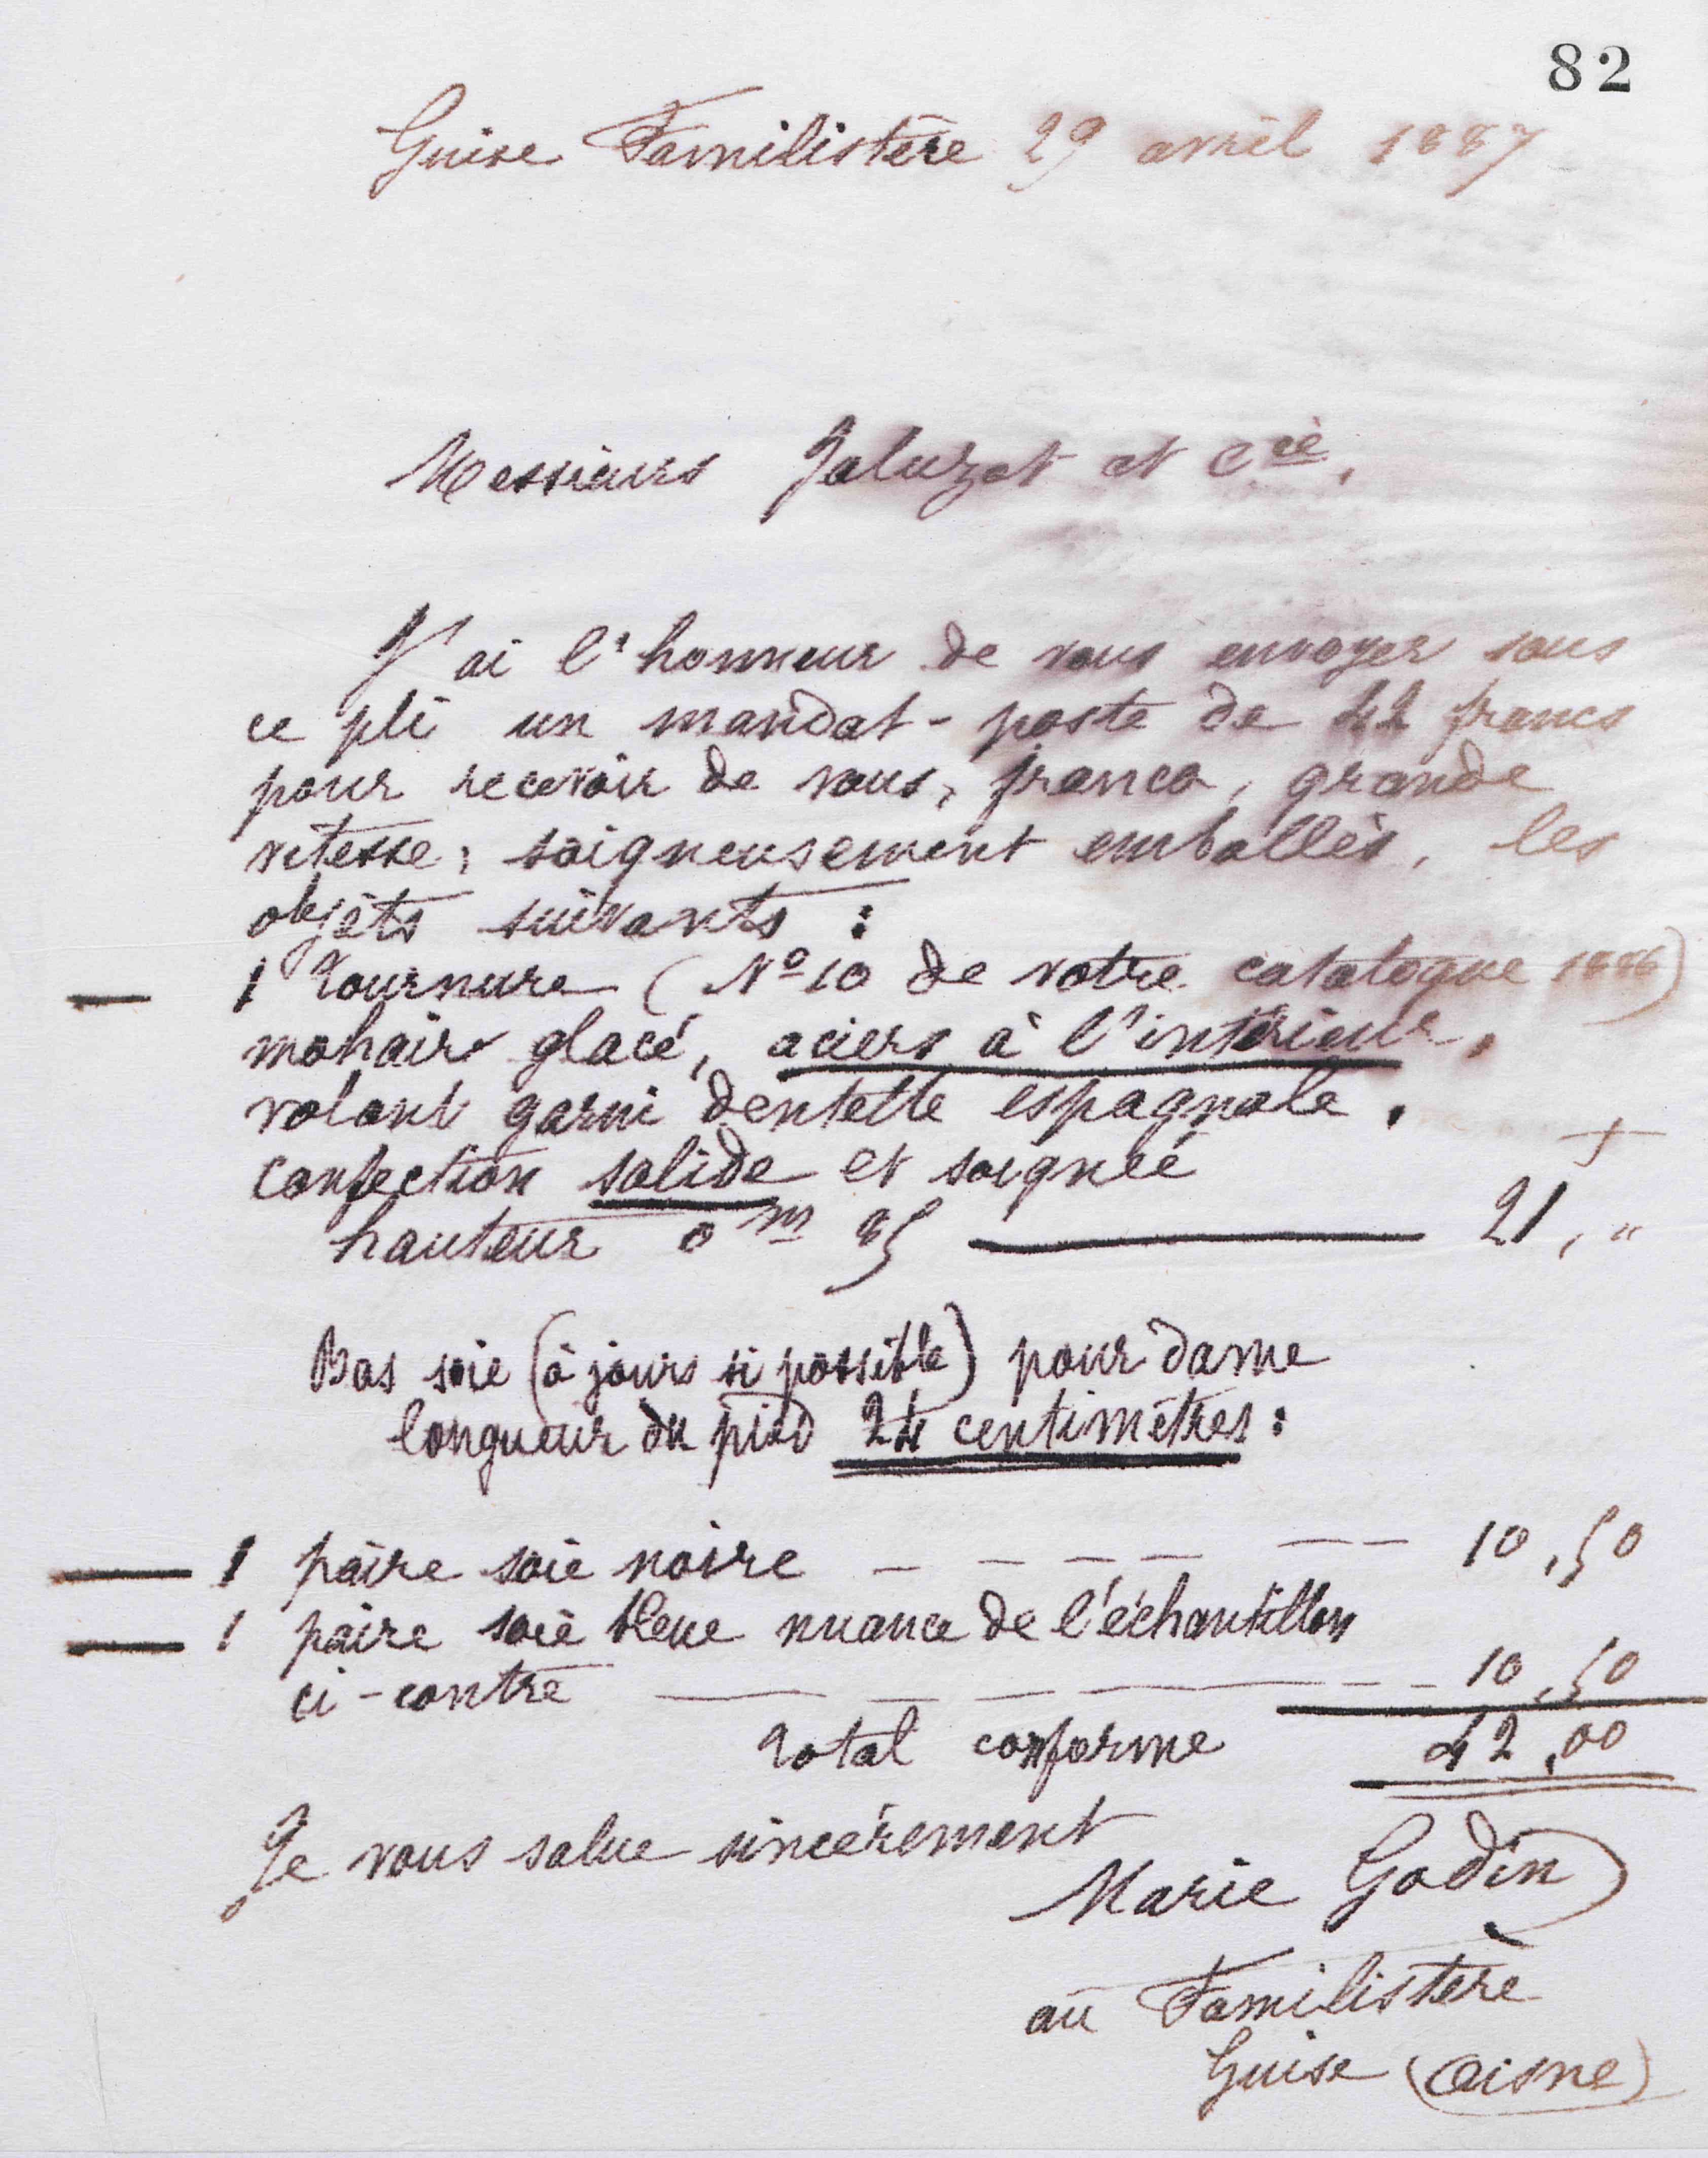 82
Guise Familistère 29 avril 1887
Messieurs Jaluzot et Cie,
J'ai l'honneur de vous envoyer sous
ce pli un mandat-poste de 42 francs
pour recevoir de vous, franco, grande
vitesse, soigneusement emballés, les
objets suivants :
— 1 Tournure (No 10 de votre catalogue 1886)
mohair glacé, aciers à l'intérieur,
volant garni dentelle espagnole,
confection solide et soignée
hauteur 0m 85 — 21, "
Bas soie (à jours si possible) pour dame
longueur du pied 24 centimètres :
— 1 paire soie noire - - - - - - 10,50
— 1 paire soie bleue nuance de l'échantillon
ci-contre — - - — - - 10,50
Total conforme 42,00
Je vous salue sincèrement
Marie Godin
au Familistère
Guise (Aisne)